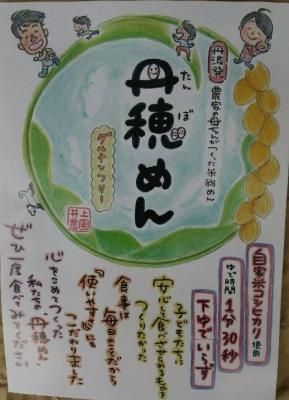 丹波発
農家の母ちゃんがつくった米粉めん
たんぼ
丹穂めん
グルテンフリー
上田農園
自家米コシヒカリ使用
ゆで時間
1分30秒
下ゆでいらず
子どもたちに
安心して食べさせられるものを
つくりたかった
食事は
毎日のことだから
"使いやすさ"にも
こだわりました
心をこめてつくった
私たちの"丹穂めん"
ぜひ一度食べてみてください